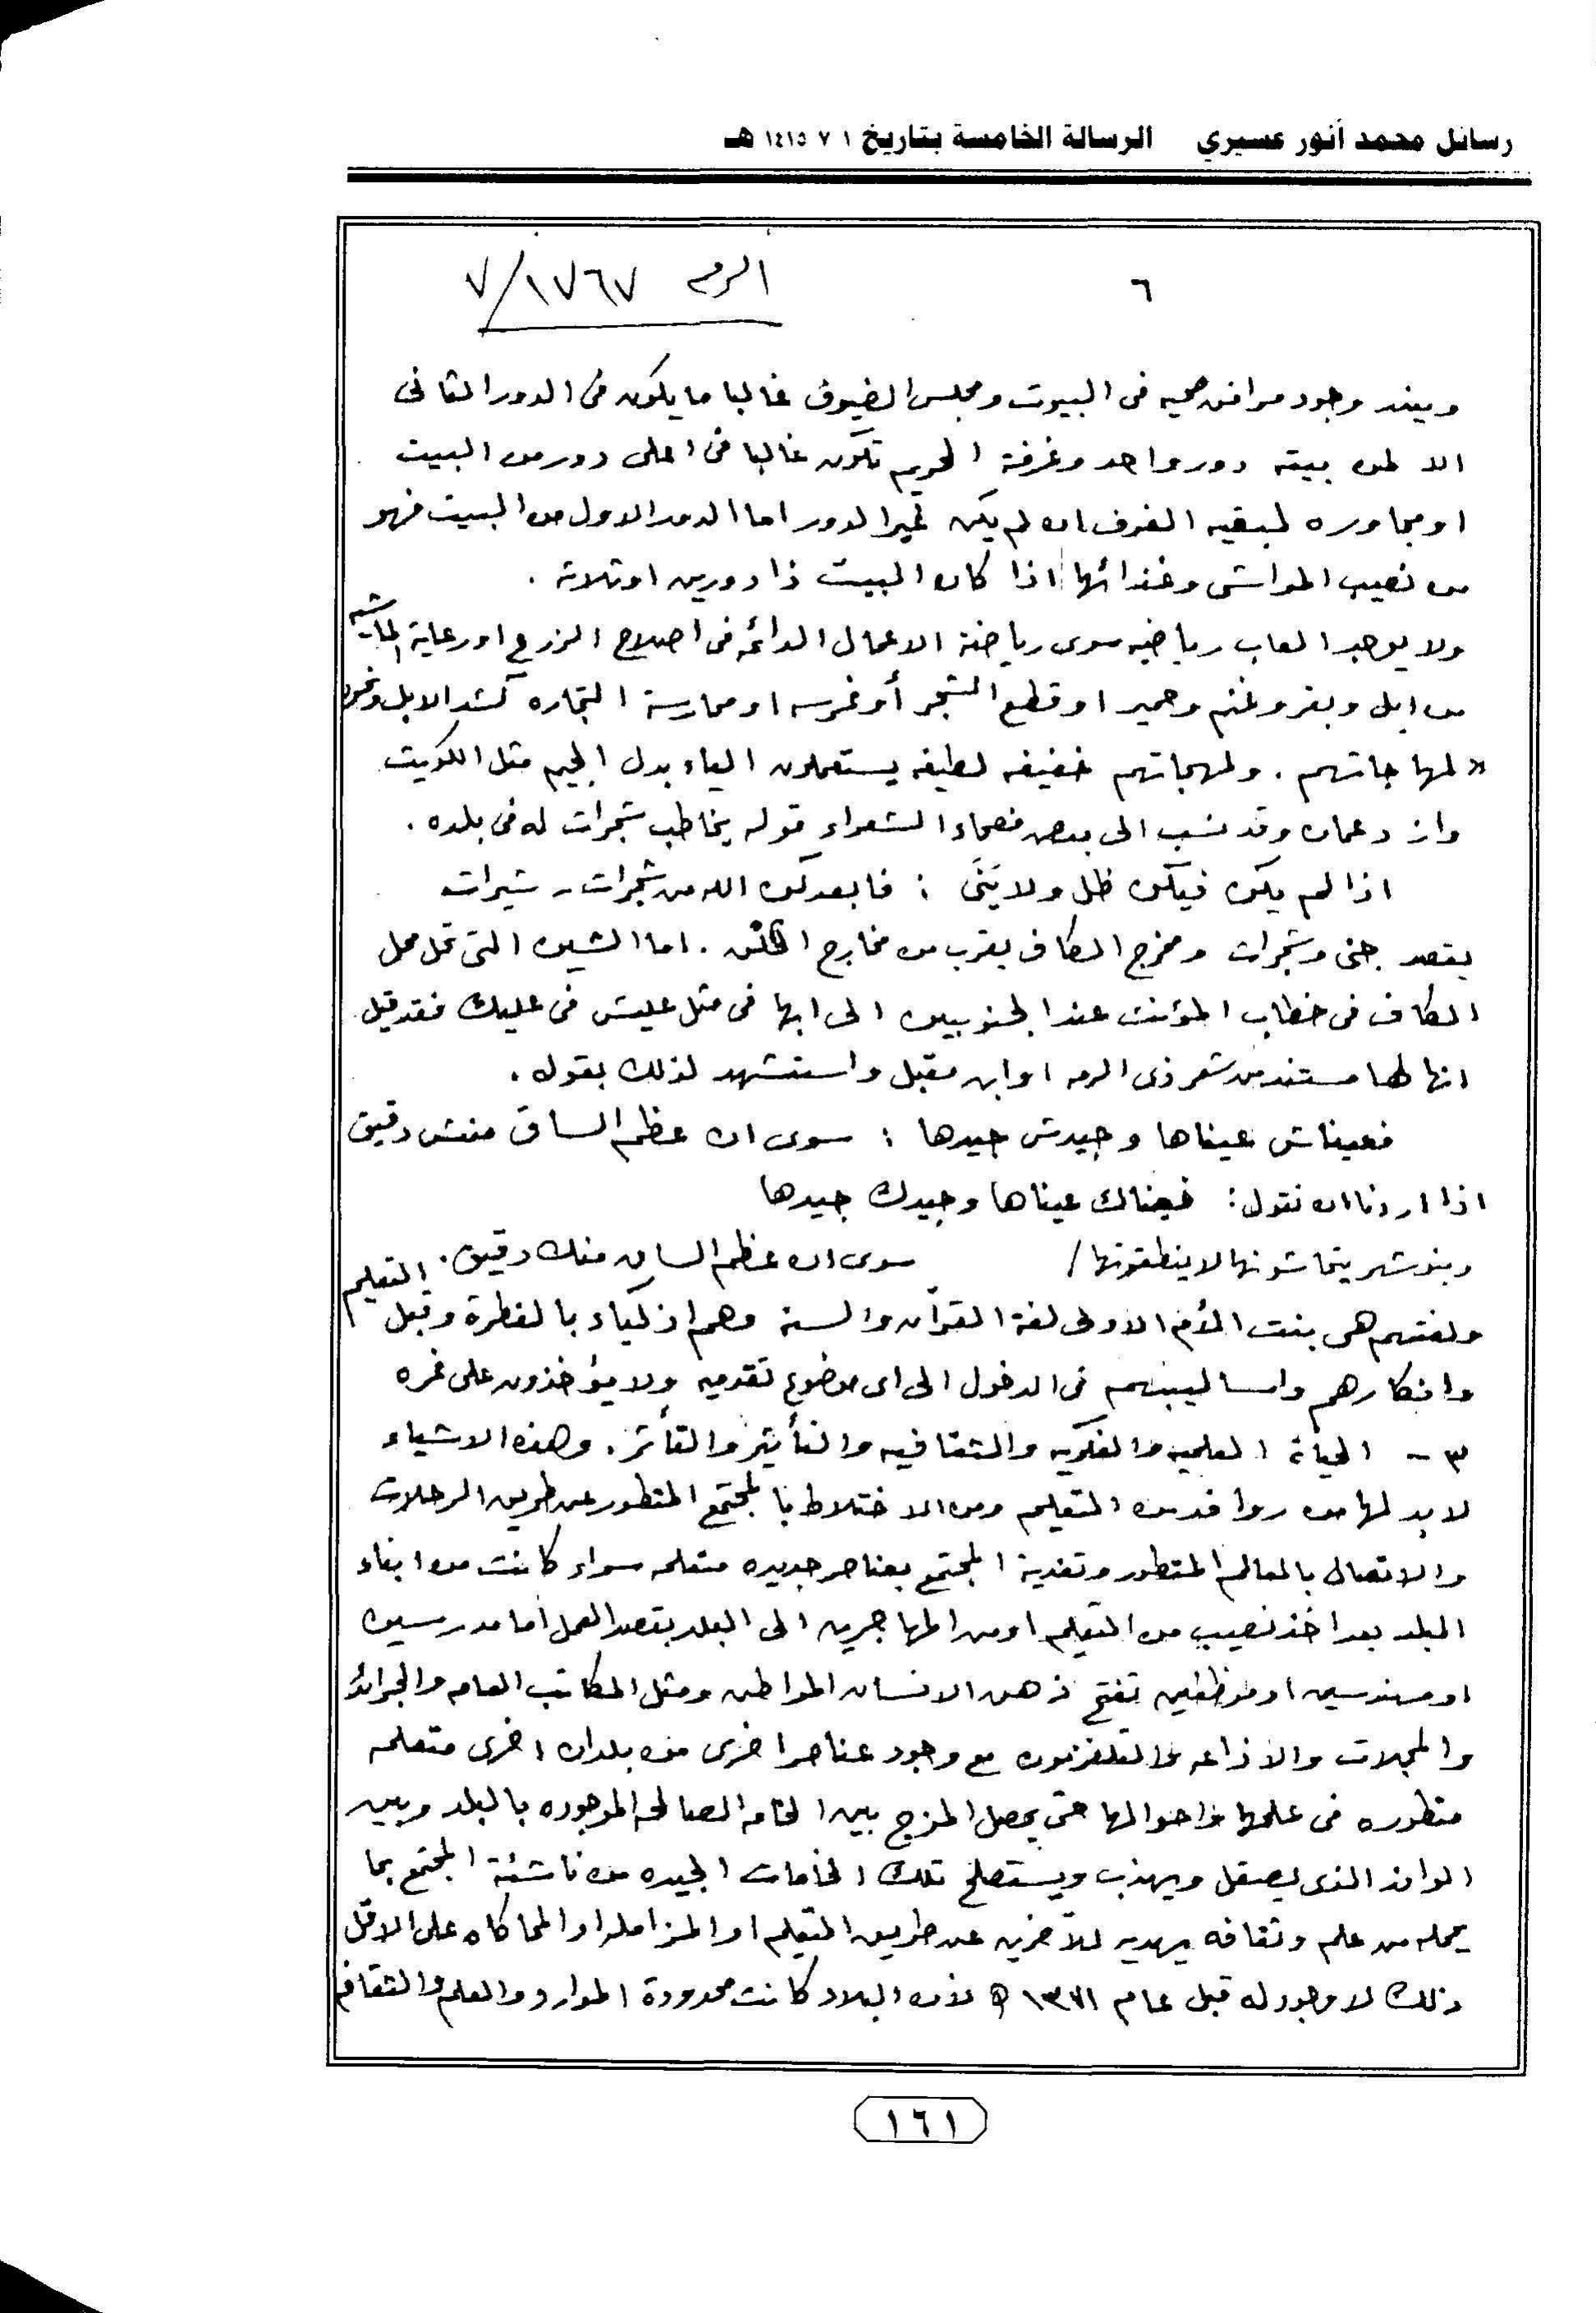 رسائل محمد أنور عسيري الرسالة الخامسة بتاريخ ١ ٧ ١٤١٥ هـ
٦ الرمز ٧/١٧٦٧
ويندر وجود مرافق صحيه فى البيوت ومجلس الضيوف غالبا ما يكون فى الدور الثانى
الا لمن بيته دور واحد وغرفة الحريم تكون غالبا فى اعلى دور من البيت
او مجاوره لبقيه الغرف ان لم يكن غير الدور اما الدور الاول من البيت فهو
من نصيب المواشى وغذائها اذا كان البيت ذا دورين او ثلاثه .
ولا يوجد العاب رياضيه سوى رياضة الاعمال الدائمه فى اصلاح الزرع او رعاية الماشيه
من ابل وبقر وغنم وحمير او قطع الشجر أو غرسه او ممارسة التجاره كشد الابل ونحوه
« لهاجاتهم . ولهجاتهم خفيفه لطيفه يستعملون الياء بدل الجيم مثل الكويت
وازد عمان وقد نسب الى بعض فصحاء الشعراء قوله يخاطب شجرات له فى بلده .
اذا لم يكن فيكن ظل ولا يَنَى : فابعدكن الله من شجرات - شيرات
يقصد جنى وشجرات ومخرج الكاف يقرب من مخارج . اما الشين التى تحل محل
الكاف فى خطاب المؤنث عند الجنوبيين الى ابها فى مثل عليش فى عليك فقد قيل
انها لها مستند من شعر ذى الرمه او ابن مقبل واستشهد لذلك بقوله .
فعيناش عيناها وجيدش جيدها : سوى ان عظم الساق منش دقيق
اذا اردنا ان نقول : فعيناك عيناها وجيدك جيدها
وبنو شهر يتحاشونها لا ينطقونها / سوى ان عظم الساق منك دقيق .
ولغتهم هى بنت الأم الاولى لغة القرآن والسنه وهم اذكياء بالفطرة وقبل التعليم
وافكارهم واساليبهم فى الدخول الى اى موضوع تقدميه ولا يؤخذون على غره
٣ - الحياة العلميه والفكريه والثقافيه والتأثير والتأثر . وهذه الاشياء
لابد لها من روافد من التعليم ومن الاختلاط بالمجتمع المتطور عن طريق الرحلات
والاتصال بالعالم المتطور وتغذية المجتمع بعناصر جديده متعلمه سواء كانت من ابناء
البلد بعد اخذ نصيب من التعليم او من المهاجرين الى البلد بقصد العمل اما مدرسين
او مهندسين او موظفين تفتح ذهن الانسان المواطن ومثل المكاتب العامه والجرائد
والمجلات والاذاعه والتلفزيون مع وجود عناصر اخرى من بلدان اخرى متعلمه
متطوره فى علمها واحوالها حتى يحصل المزج بين الخامه الصالحه الموجوده بالبلد وبين
الوافد الذى يصقل ويهذب ويستصلح تلك الخامات الجيده من ناشئة المجتمع بما
يحمله من علم وثقافه يهديه للآخرين عن طريق التعليم او المزامله او المحاكاه على الاقل
وذلك لا وجود له قبل عام ١٣٧١ ه لأن البلاد كانت محدودة الموارد والعلم والثقافه
١٦١